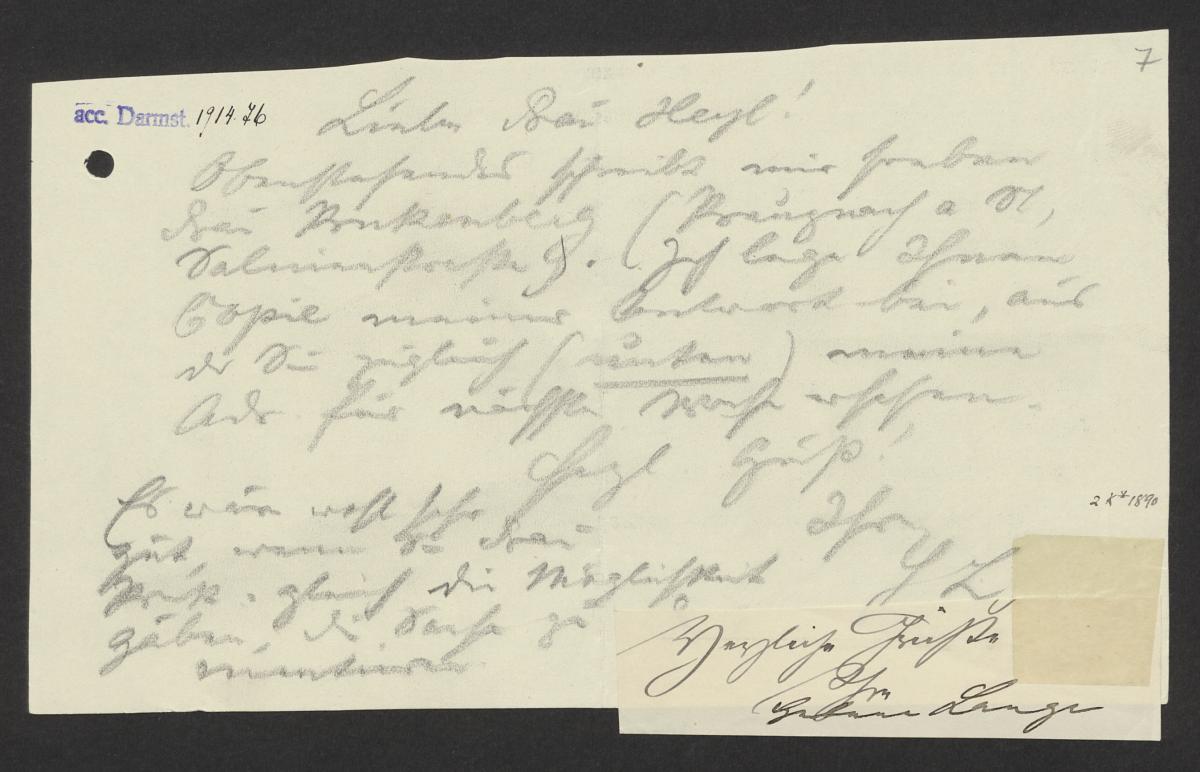 7
acc. Darmst. 1914.76
Liebe Frau Heyl!
Obenstehendes schreibt mir soeben
Frau (Kreuznach a N,
Salinenstraße 9). (Ich lege Ihnen
Copie meiner Antwort bei, aus
der Sie zugleich (unten) meine
Adr für nächste Woche ersehen.
Herzl Gruß!
Ihre
HL
Es wäre wohl sehr
gut, wenn Sie Frau
gleich die Möglichkeit
gäben, die Sache zu
2 X 1890
Herzliche Grüße
Ihre
Helene Lange